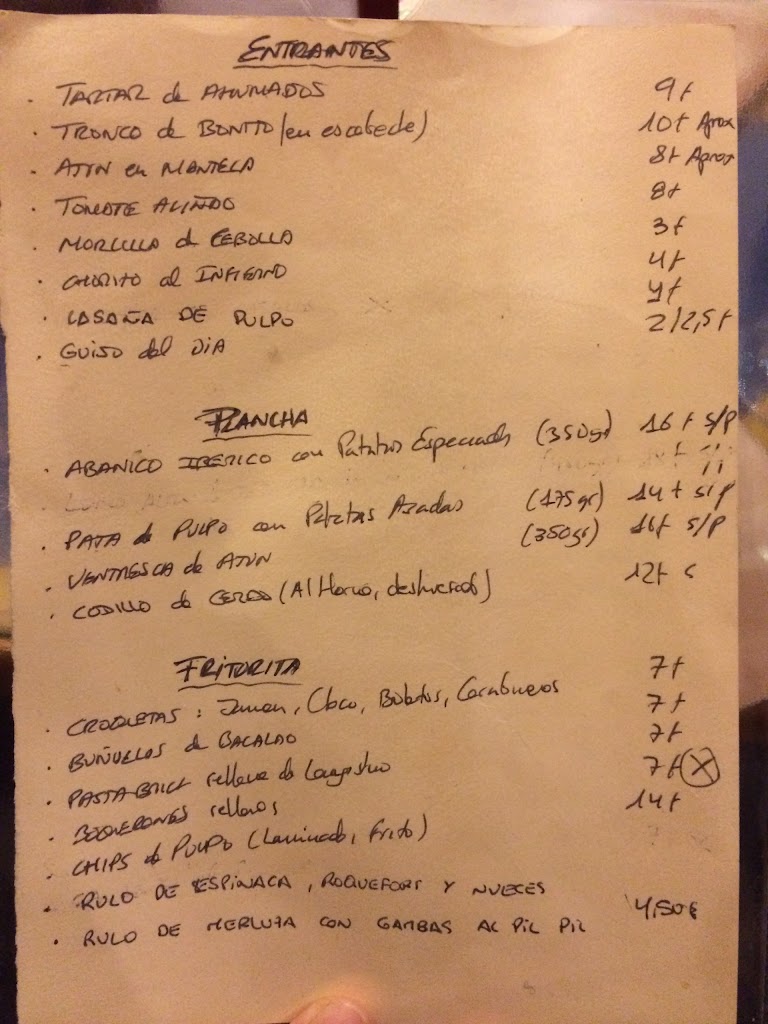 ENTRANTES
· TARTAR de AHUMADOS 9€
· TRONCO de BONITO (en escabeche) 10€ Aprox
· ATÚN en MANTECA 8€ Aprox
· TOMATE ALIÑADO 8€
· MORCILLA de CEBOLLA 3€
· CHORIZO al INFIERNO 4€
· LASAÑA DE PULPO 4€
· GUISO del DIA 2/2,5€
PLANCHA
· ABANICO IBERICO con Patatas Especiales (350gr) 16€ S/P
· PATA de PULPO con Patatas Asadas (175gr) 14€ S/P
· VENTRESCA de ATÚN (350gr) 16€ S/P
· CODILLO de CERDO (Al Horno, deshuesado) 12€
FRITURITA
· CROQUETAS: Jamon, Choco, Boletus, Carabineros 7€
· BUÑUELOS de BACALAO 7€
· PASTA BRICK rellena de Langostino 7€
· BOQUERONES rellenos 7€ X
· CHIPS de PULPO (Laminado, frito) 14€
· RULO DE ESPINACA, ROQUEFORT Y NUECES
· RULO DE MERLUZA CON GAMBAS AL PIL PIL 4,50€